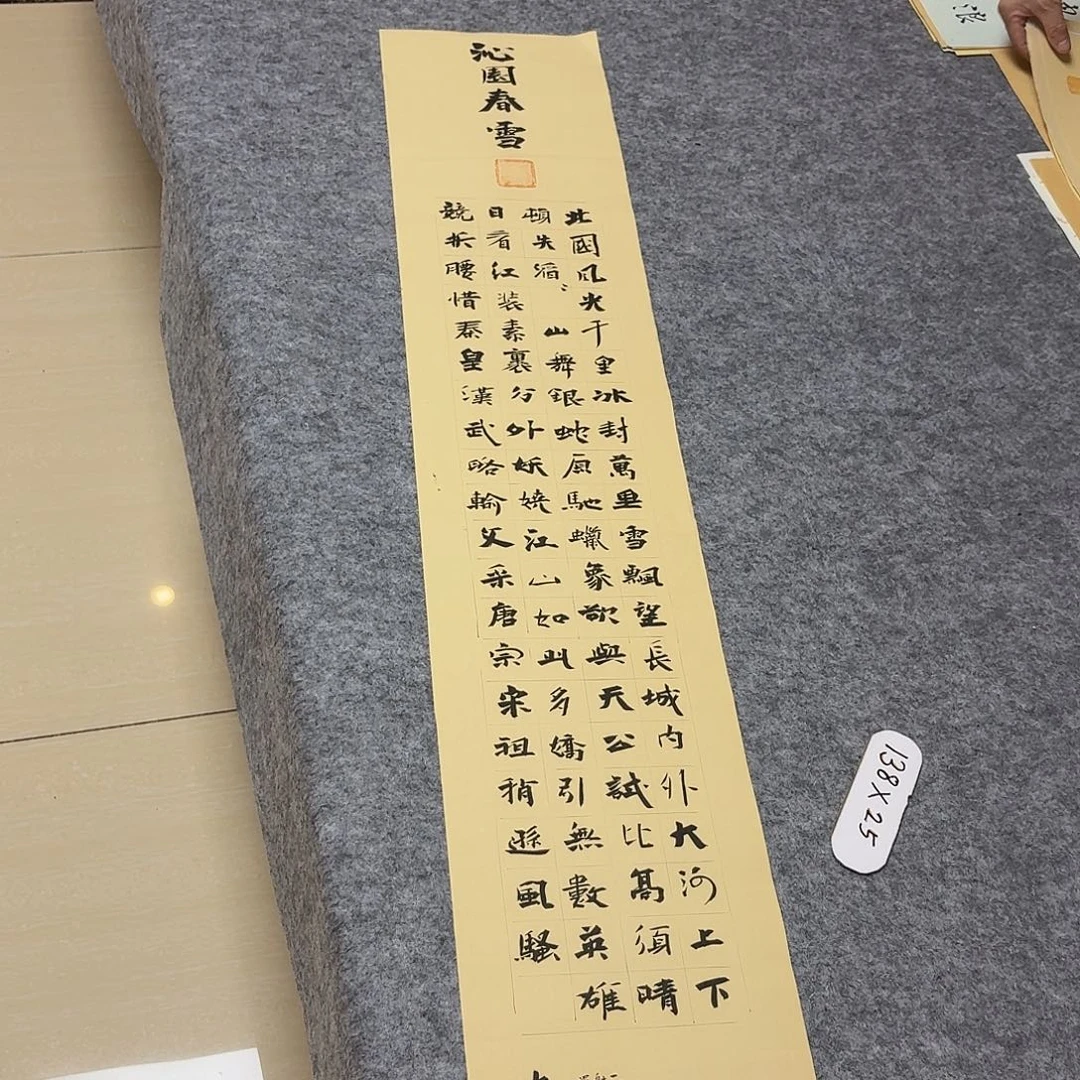 沁園春雪
北國风光千里冰封萬里雪飄望長城内外大河上下
頓失滔〻山舞銀蛇原馳蠟象欲與天公試比高須晴
日看红装素裹分外妖嬈江山如此多嬌引無數英雄
競折腰惜秦皇漢武略輸文采唐宗宋祖稍遜風騷
138X25
浪